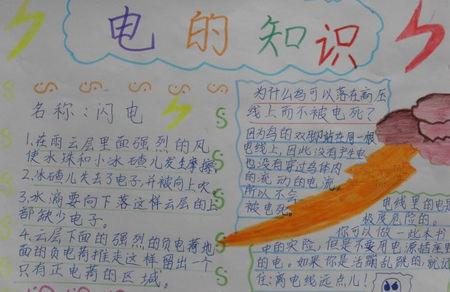 电的知识
名称:闪电
1.在雨云层里面强烈的风
使水珠和小冰碴儿发生摩擦
2.冰碴儿失去了电子,并被向上吹
3.水滴要向下落这样云层的上
部缺少电子。
4.云层下面的强烈的负电荷把
面的负电荷推走这样留出一个
只有正电荷的区域。
为什么鸟可以落在高压
线上而不被电死?
因为鸟的双脚站在同一根
电线上,因此没有产生电
也没有穿过鸟体内
的流动的电流
所以不会
被电死。
电线里的电是
极度危险的。
你可以做一些本书
中的实险,但是不要用电源插座
的电。如果你是活蹦乱跳的,就记
住:离电线远点儿!